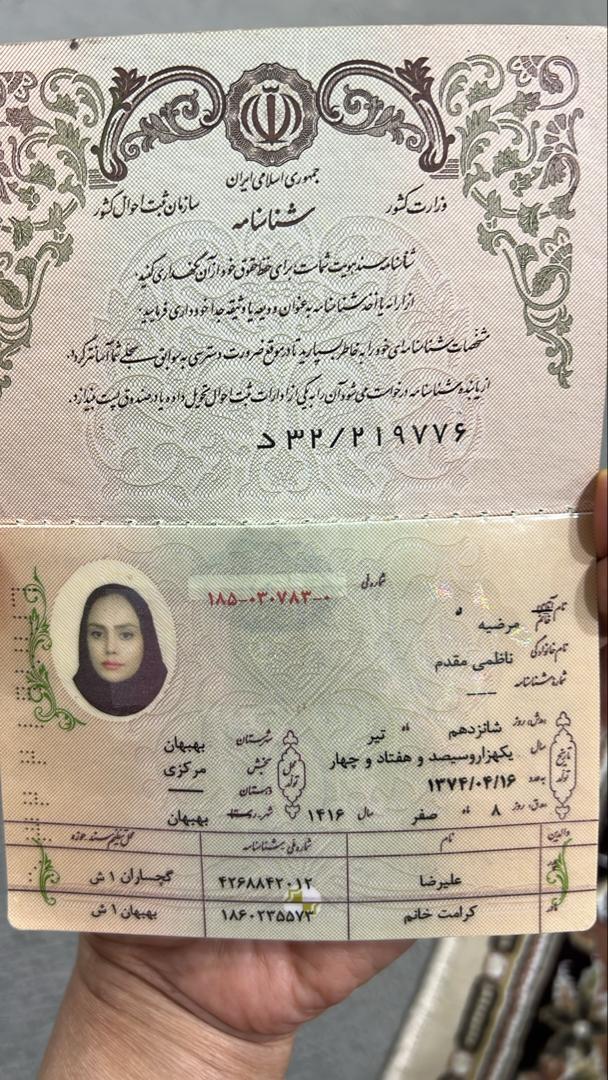 جمهوری اسلامی ایران
وزارت کشور
سازمان ثبت احوال کشور
شناسنامه
شناسنامه سند هویت شماست برای حفظ حقوق خود از آن نگهداری کنید.
از ارائه یا اخذ شناسنامه به عنوان ودیعه یا وثیقه جدا خودداری فرمایید.
مشخصات شناسنامه‌ای خود را به خاطر بسپارید تا در موقع ضرورت دسترسی به سوابق سجلی شما آسانتر گردد.
از یابنده شناسنامه درخواست می‌شود آن را به یکی از ادارات ثبت احوال تحویل داده یا در صندوق پست بیندازد.
د ۳۲/۲۱۹۷۷۶
شماره ملی
۱۸۵-۰۳۰۷۸۳-۰
نام خانم مرضیه
نام خانوادگی ناظمی مقدم
شماره شناسنامه ---
تاریخ تولد
روز شانزدهم ماه تیر
سال یکهزاروسیصد و هفتاد و چهار
به عدد ۱۳۷۴/۰۴/۱۶
روز ۸ ماه صفر سال ۱۴۱۶
محل تولد
شهرستان بهبهان
بخش مرکزی
دهستان ---
شهر بهبهان
والدین نام شماره ملی / شناسنامه محل تنظیم سند / حوزه
پدر علیرضا ۴۲۶۸۸۴۲۰۱۲ گچساران ۱ ش
مادر کرامت خانم ۱۸۶۰۲۳۵۵۷۳ بهبهان ۱ ش